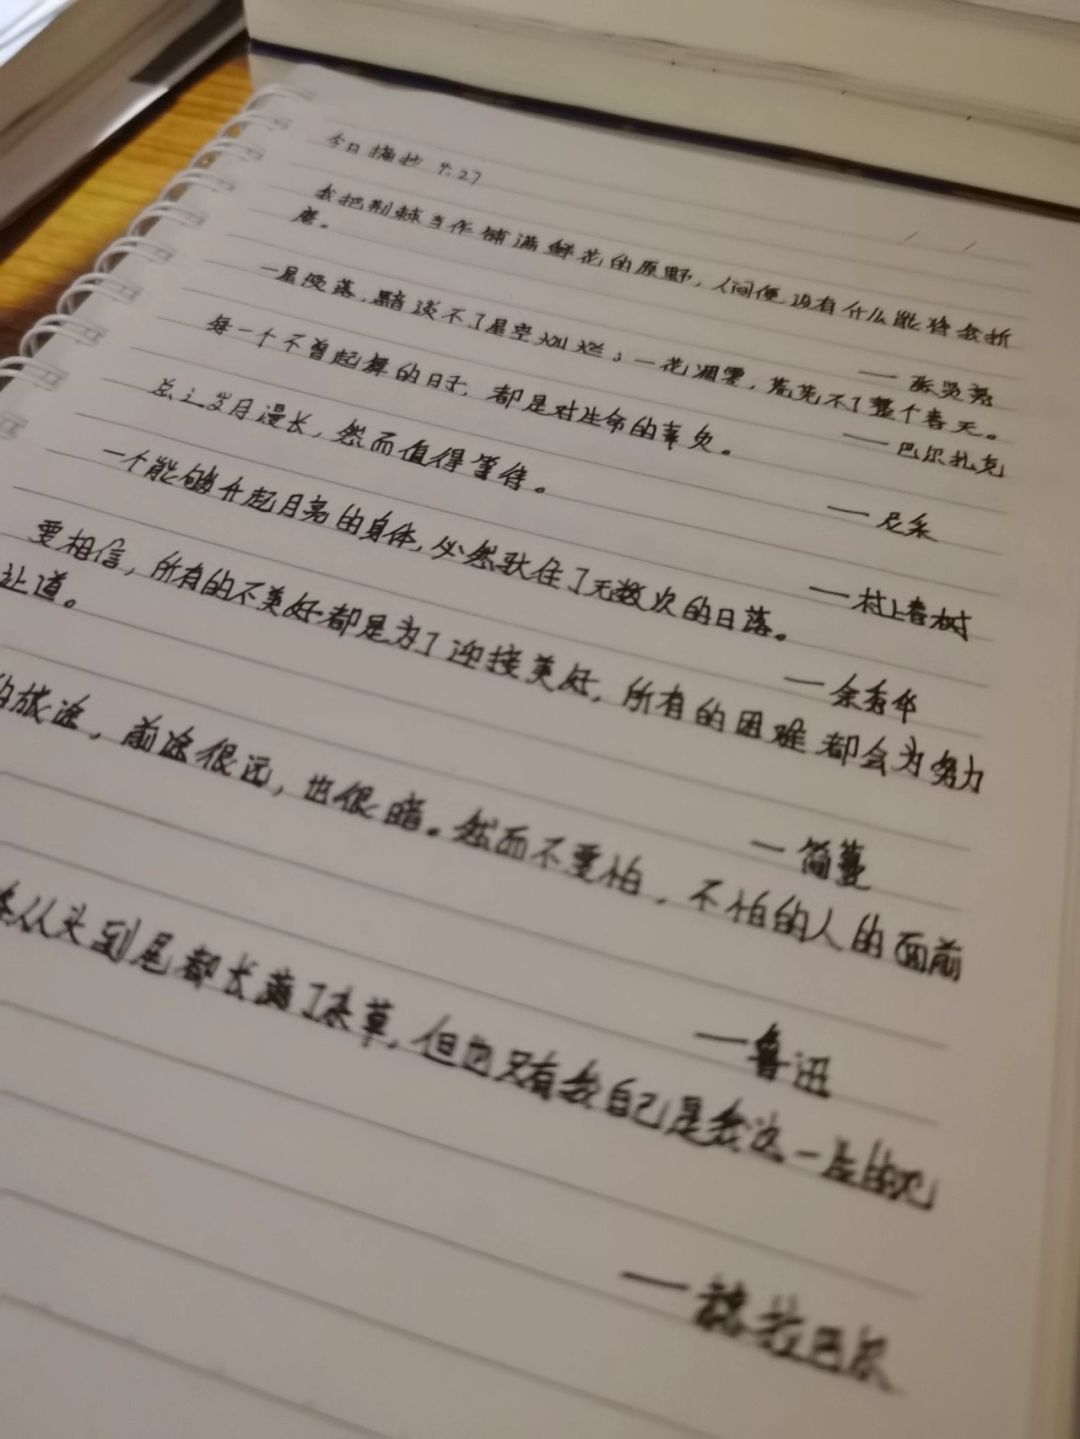 今日摘抄 9.27
我把荆棘当作铺满鲜花的原野，人间便没有什么能将我折
磨。
—— 张贤亮
一星陨落，黯淡不了星空灿烂；一花凋零，荒芜不了整个春天。
—— 巴尔扎克
每一个不曾起舞的日子，都是对生命的辜负。
—— 尼采
总之岁月漫长，然而值得等待。
—— 村上春树
一个能够升起月亮的身体，必然驮住了无数次的日落。
—— 余秀华
要相信，所有的不美好都是为了迎接美好，所有的困难都会为努力
让道。
—— 简蔓
的旅途，前途很远，也很暗。然而不要怕，不怕的人的面前
—— 鲁迅
从头到尾都长满了杂草，但也只有我自己是我这一
—— 赫拉巴尔